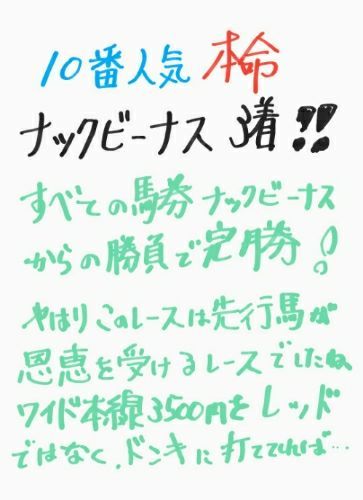 10番人気 本命
ナックビーナス 3着!!
すべての馬券ナックビーナス
からの勝負で完勝!
やはりこのレースは先行馬が
恩恵を受けるレースでしたね、
ワイド本線3500円をレッド
ではなく、ドンキに打ててれば…